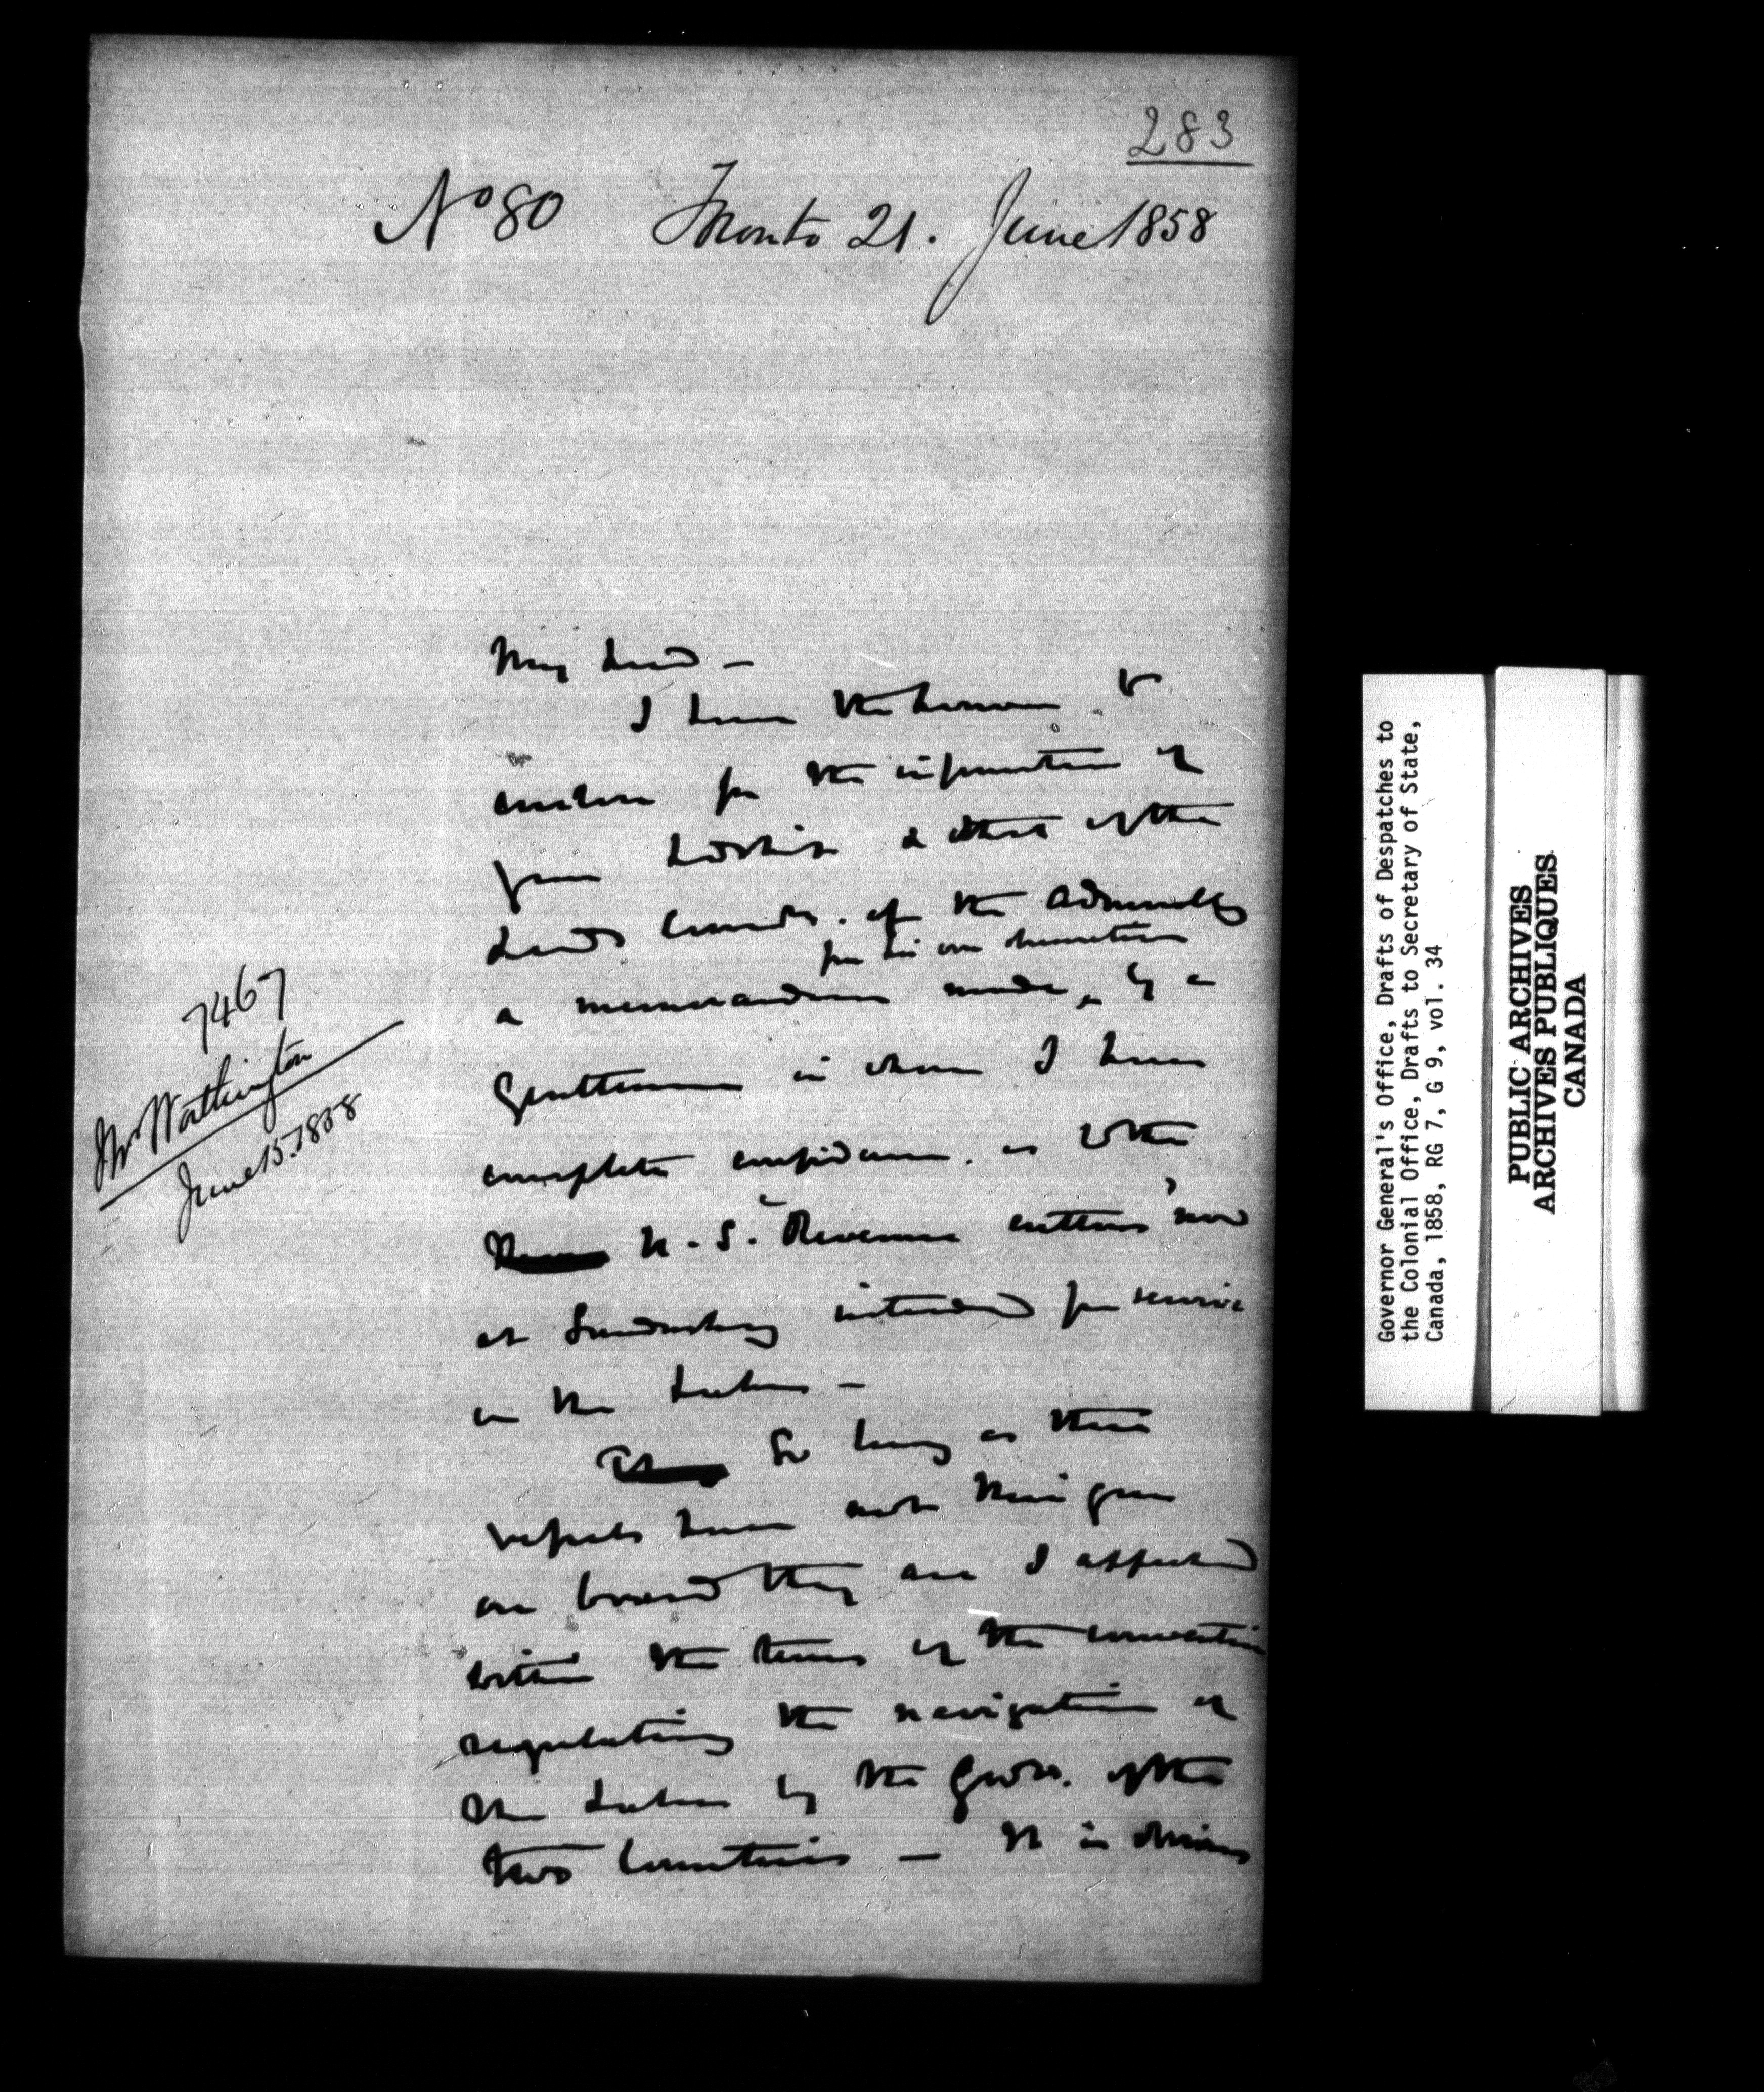 283
No 80 Toronto 21. June 1858
My Lord –
I have the honour to
enclose for the information of
your Lordship & that of the
Lords Commrs. of the Admiralty
for his own information
a memorandum made by a
Gentleman in whom I have
complete confidence. as to the
U. S. "Revenue cutters" now
at Sandusky intended for service
on the Lakes –
So long as these
vessels have not their guns
on board they are I apprehend
within the terms of the convention
regulating the navigation of
the Lakes by the Govts. of the
two Countries – It is obvious
7467
Mr Worthington
June 15. 1858
Governor General's Office, Drafts of Despatches to
the Colonial Office, Drafts to Secretary of State,
Canada, 1858, RG 7, G 9, vol. 34
PUBLIC ARCHIVES
ARCHIVES PUBLIQUES
CANADA